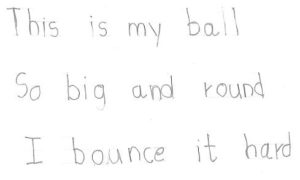 This is my ball
So big and round
I bounce it hard